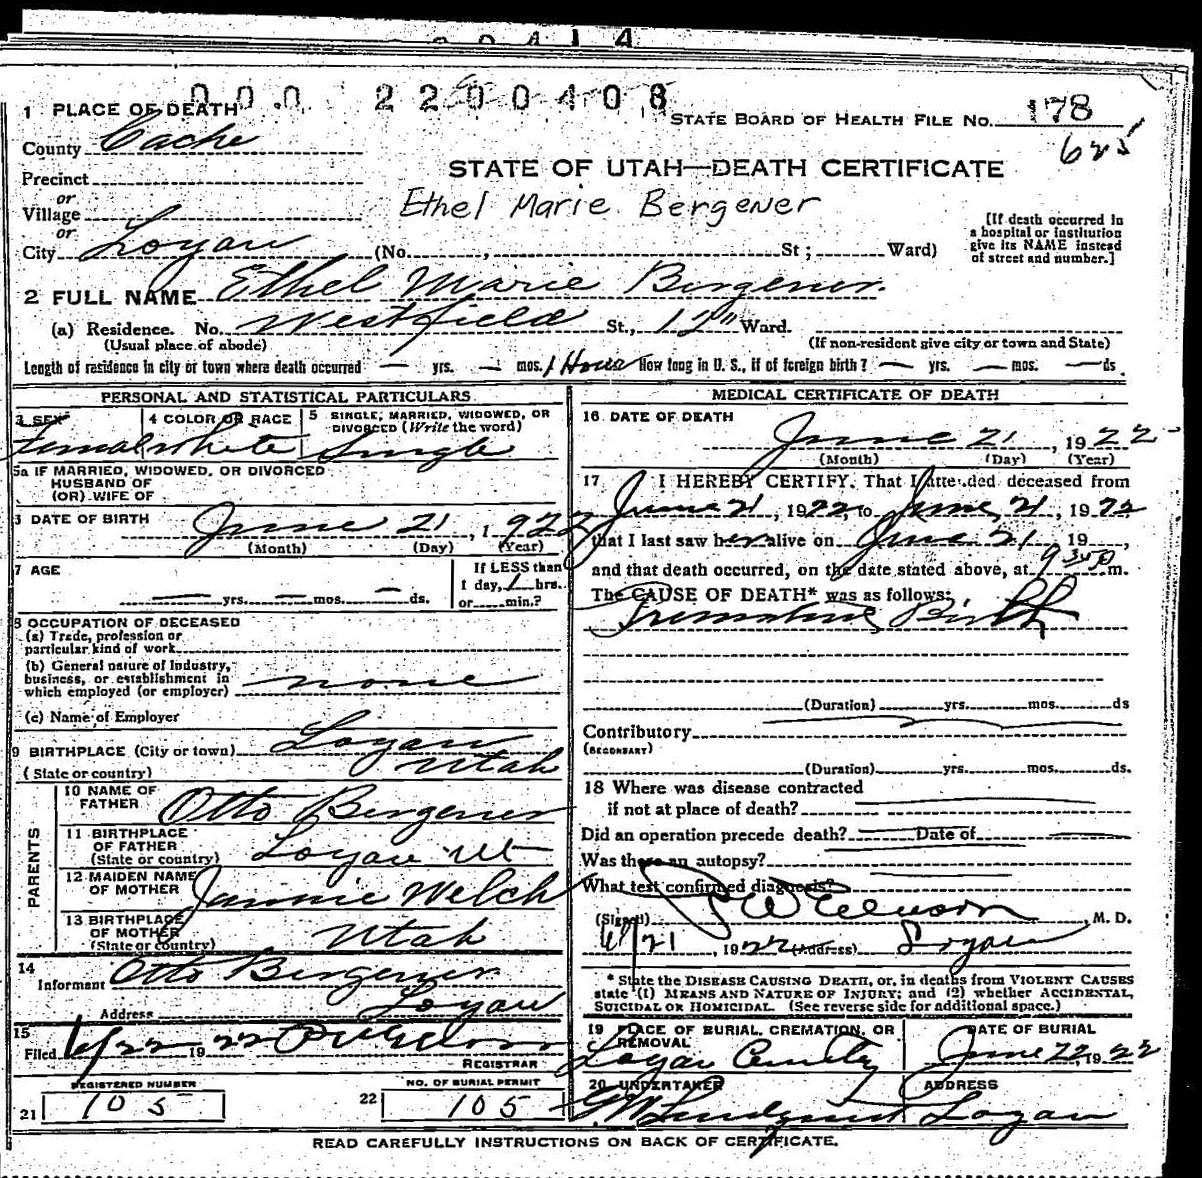 0 0 0 2 2 0 0 4 0 8
1 PLACE OF DEATH
STATE BOARD OF HEALTH FILE No. 178
625
County Cache
STATE OF UTAH—DEATH CERTIFICATE
Precinct
or
Village
Ethel Marie Bergener
or
City Logan (No. , St ; Ward)
[If death occurred in
a hospital or institution
give its NAME instead
of street and number.]
2 FULL NAME Ethel Marie Bergener.
(a) Residence. No. Westfield St., 12" Ward.
(Usual place of abode)
(If non-resident give city or town and State)
Length of residence in city or town where death occurred — yrs. — mos. 1 Hour How long in U. S., if of foreign birth? — yrs. — mos. — ds
PERSONAL AND STATISTICAL PARTICULARS
3 SEX
Female
4 COLOR OR RACE
White
5 SINGLE, MARRIED, WIDOWED, OR
DIVORCED (Write the word)
Single
5a IF MARRIED, WIDOWED, OR DIVORCED
HUSBAND OF
(OR) WIFE OF
DATE OF BIRTH
June 21, 1922
(Month) (Day) (Year)
7 AGE
If LESS than
1 day, 1 hrs.
— yrs. — mos. — ds.
or min.?
8 OCCUPATION OF DECEASED
(a) Trade, profession or
particular kind of work
(b) General nature of Industry,
business, or establishment in
which employed (or employer) none
(c) Name of Employer
9 BIRTHPLACE (City or town) Logan
(State or country) Utah
PARENTS
10 NAME OF
FATHER Otto Bergener
11 BIRTHPLACE
OF FATHER
(State or country) Logan Ut
12 MAIDEN NAME
OF MOTHER Jannie Welch
13 BIRTHPLACE
OF MOTHER
(State or country) Utah
14
Informant Otto Bergener
Address Logan
15
Filed 6/22 1922
REGISTRAR
REGISTERED NUMBER
21 105
NO. OF BURIAL PERMIT
22 105
MEDICAL CERTIFICATE OF DEATH
16 DATE OF DEATH
June 21, 1922
(Month) (Day) (Year)
17 I HEREBY CERTIFY, That I attended deceased from
June 21, 1922, to June, 21, 1922
that I last saw her alive on June 21, 19 ,
and that death occurred, on the date stated above, at 9 30 p m.
The CAUSE OF DEATH* was as follows:
Premature Birth
(Duration) yrs. mos. ds
Contributory
(SECONDARY)
(Duration) yrs. mos. ds.
18 Where was disease contracted
if not at place of death?
Did an operation precede death? Date of
Was there an autopsy?
What test confirmed diagnosis?
(Signed) , M. D.
6/21, 1922 (Address) Logan
* State the DISEASE CAUSING DEATH, or, in deaths from VIOLENT CAUSES
state (1) MEANS AND NATURE OF INJURY; and (2) whether ACCIDENTAL,
SUICIDAL OR HOMICIDAL. (See reverse side for additional space.)
19 PLACE OF BURIAL, CREMATION, OR
REMOVAL
Logan Cemetery
DATE OF BURIAL
June 22, 1922
20 UNDERTAKER
G W Lindquist
ADDRESS
Logan
READ CAREFULLY INSTRUCTIONS ON BACK OF CERTIFICATE.